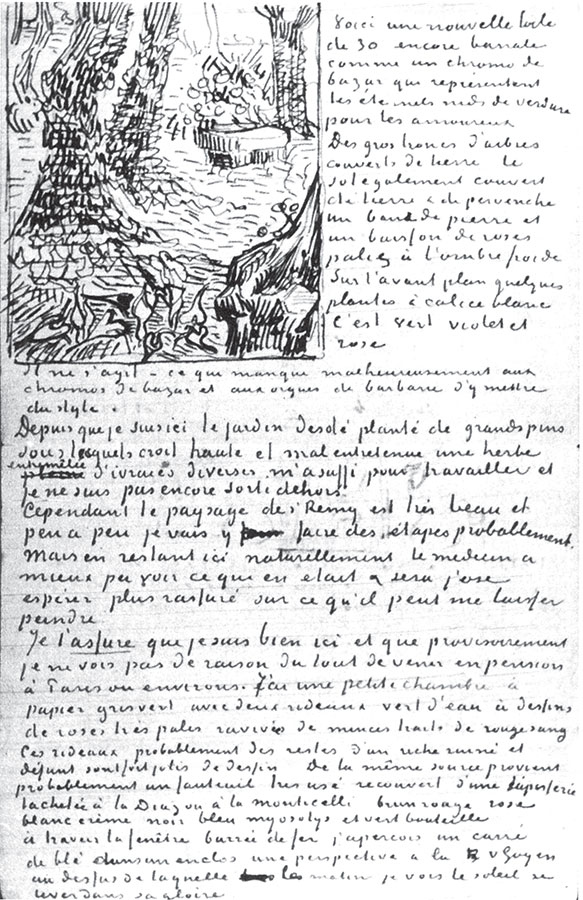 Voici une nouvelle toile
de 30 encore banale
comme un chromo de
bazar qui représentent
les éternels nids de verdure
pour les amoureux
Des gros troncs d'arbres
couverts de lierre le
sol également couvert
de lierre & de pervenche
un banc de pierre et
un buisson de roses
palies à l'ombre froide
Sur l'avant plan quelques
plantes à calice blanc
C'est vert violet et
rose
Il ne s'agit – ce qui manque malheureusement aux
chromos de bazar et aux orgues de barbarie d'y mettre
du style.
Depuis que je suis ici le jardin desolé planté de grands pins
sous lesquels croit haute et mal entretenue une herbe
entremêlée d'ivraies diverses m'a suffi pour travailler et
je ne suis pas encore sorti dehors.
Cependant le paysage de St Remy est très beau et
peu a peu je vais y faire des étapes probablement.
Mais en restant ici naturellement le medecin a
mieux pu voir ce qui en etait & sera j'ose
espérer plus rassuré sur ce qu'il peut me laisser
peindre
Je t'assure que je suis bien ici et que provisoirement
je ne vois pas de raison du tout de venir en pension
à Paris ou environs. J'ai une petite chambre à
papier gris vert avec deux rideaux vert d'eau à dessins
de roses très pales ravivés de minces traits de rouge sang
Ces rideaux probablement des restes d'un riche ruiné et
défunt sont fort jolis de dessin De la même source provient
probablement un fauteuil très usé recouvert d'une tapisserie
tachetée à la Diaz ou à la Monticelli brun rouge rose
blanc crême noir bleu myosotys et vert bouteille
à travers la fenêtre barrée de fer j'aperçois un carré
de blé dans un enclos une perspective a la v Goyen
au dessus de laquelle le matin je vois le soleil se
lever dans sa gloire